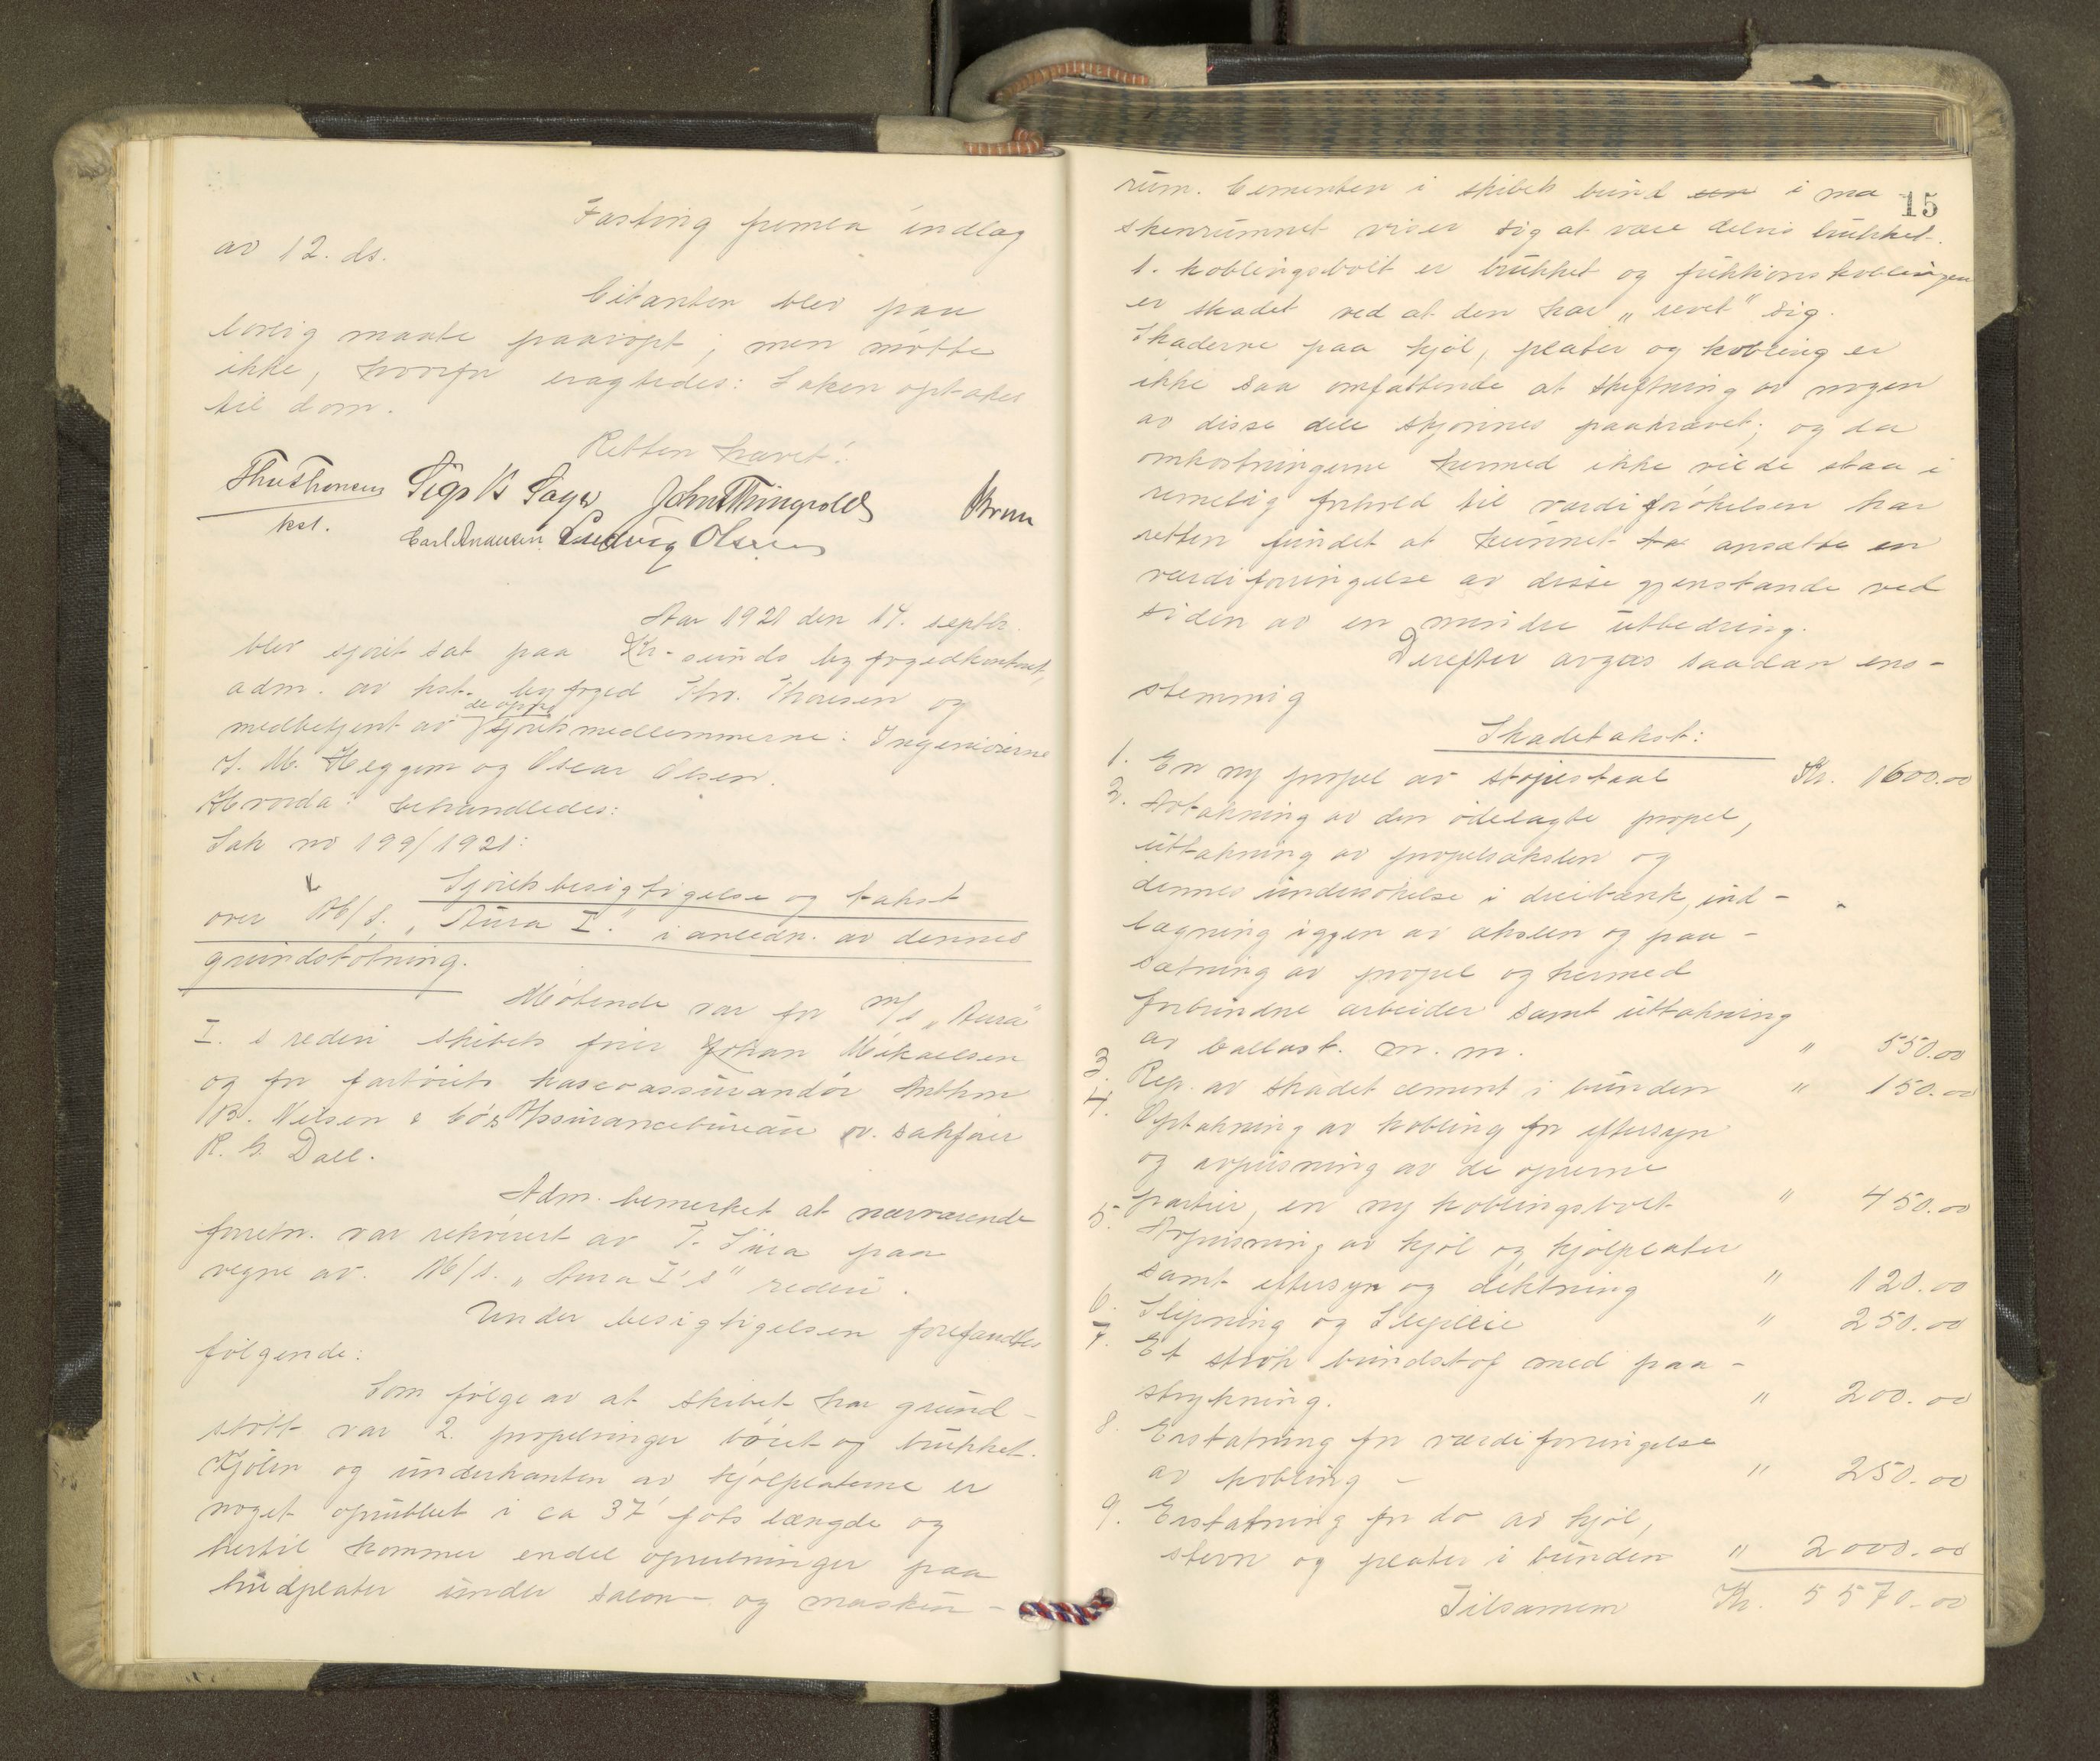 Fasting fremla indlag
av 12. ds.
Citanten blev paa
lovlig maate paaropt, men møtte
ikke, hvorfor eragtedes: Saken optakes
til dom.
Retten hævet.
Thv Thoresen Sigv B Sager John Thingvold Brun
kst. Carl Andersen Ludvig Olsen
Aar 1921 den 14. septbr.
blev sjøret sat paa Kr-sunds byfogedkontor,
adm. av kst. byfoged Thv. Thoresen og
medbetjent av de oppn sjøretsmedlemmerne: Ingeniørerne
S. M. Heggem og Oscar Olsen.
Hvorda: behandledes:
Sak no 199/1921:
Sjøretsbesigtigelse og takst
over M/S. „Aura I." i anledn. av dennes
grundstøtning.
Møtende var for M/S „Aura"
I.s rederi skibets fører Johan Mikaelsen
og for fartøiets kascoassurandør Anthon
B. Nilsen & Co's Assurancebureau v. sakfører
R. G. Dall.
Adm. bemerket at nærværende
forretn. var rekvirert av T. Sura paa
vegne av M/S. „Aura I's" rederi.
Under besigtigelsen forefandtes
følgende:
Som følge av at skibet har grund-
støtt var 2 propelvinger bøiet og brukket.
Kjølen og underkanten av kjølplaterne er
noget oprubbet i ca 37 fots længde og
hertil kommer endel oprivninger paa
hudplater under salon- og maskin-
15
rum. Cementen i skibets bund er i ma
skenrummet viser sig at være delvis brukket.
1. koblingsbolt er brukket og friktionskoblingen
er skadet ved at den har „revet" sig.
Skaderne paa kjøl, plater og kobling er
ikke saa omfattende at skiftning av nogen
av disse dele skjønnes paakrævet; og da
omkostningerne hermed ikke vilde staa i
rimelig forhold til værdiforøkelsen har
retten fundet at kunnet ta ansætte en
værdiforringelse av disse gjenstande ved
siden av en mindre utbedring.
Derefter avgas saadan ens-
stemmig
Skadetakst:
1. En ny propel av støpestaal Kr. 1600.00
2. Avtakning av den ødelagte propel,
uttakning av propelakslen og
dennes undersøkelse i dreibænk, ind-
lægning iggen av akslen og paa-
sætning av propel og hermed
forbundne arbeider samt uttakning
av ballast. m. m. " 550.00
3. Rep. av skadet cement i bunden " 150.00
4. Optakning av kobling for eftersyn
og avpusning av de oprevne
partier, en ny koblingsbolt " 450.00
5. Avpusning av kjøl og kjølplater
samt eftersyn og diktning " 120.00
6. Slipning og Slipleie " 250.00
7. Et strøk bundstof med paa-
strykning. " 200.00
8. Erstatning for værdiforringelse
av kobling - " 250.00
9. Erstatning for do av kjøl,
stevn og plater i bunden " 2000.00
Tilsammen Kr. 5570.00